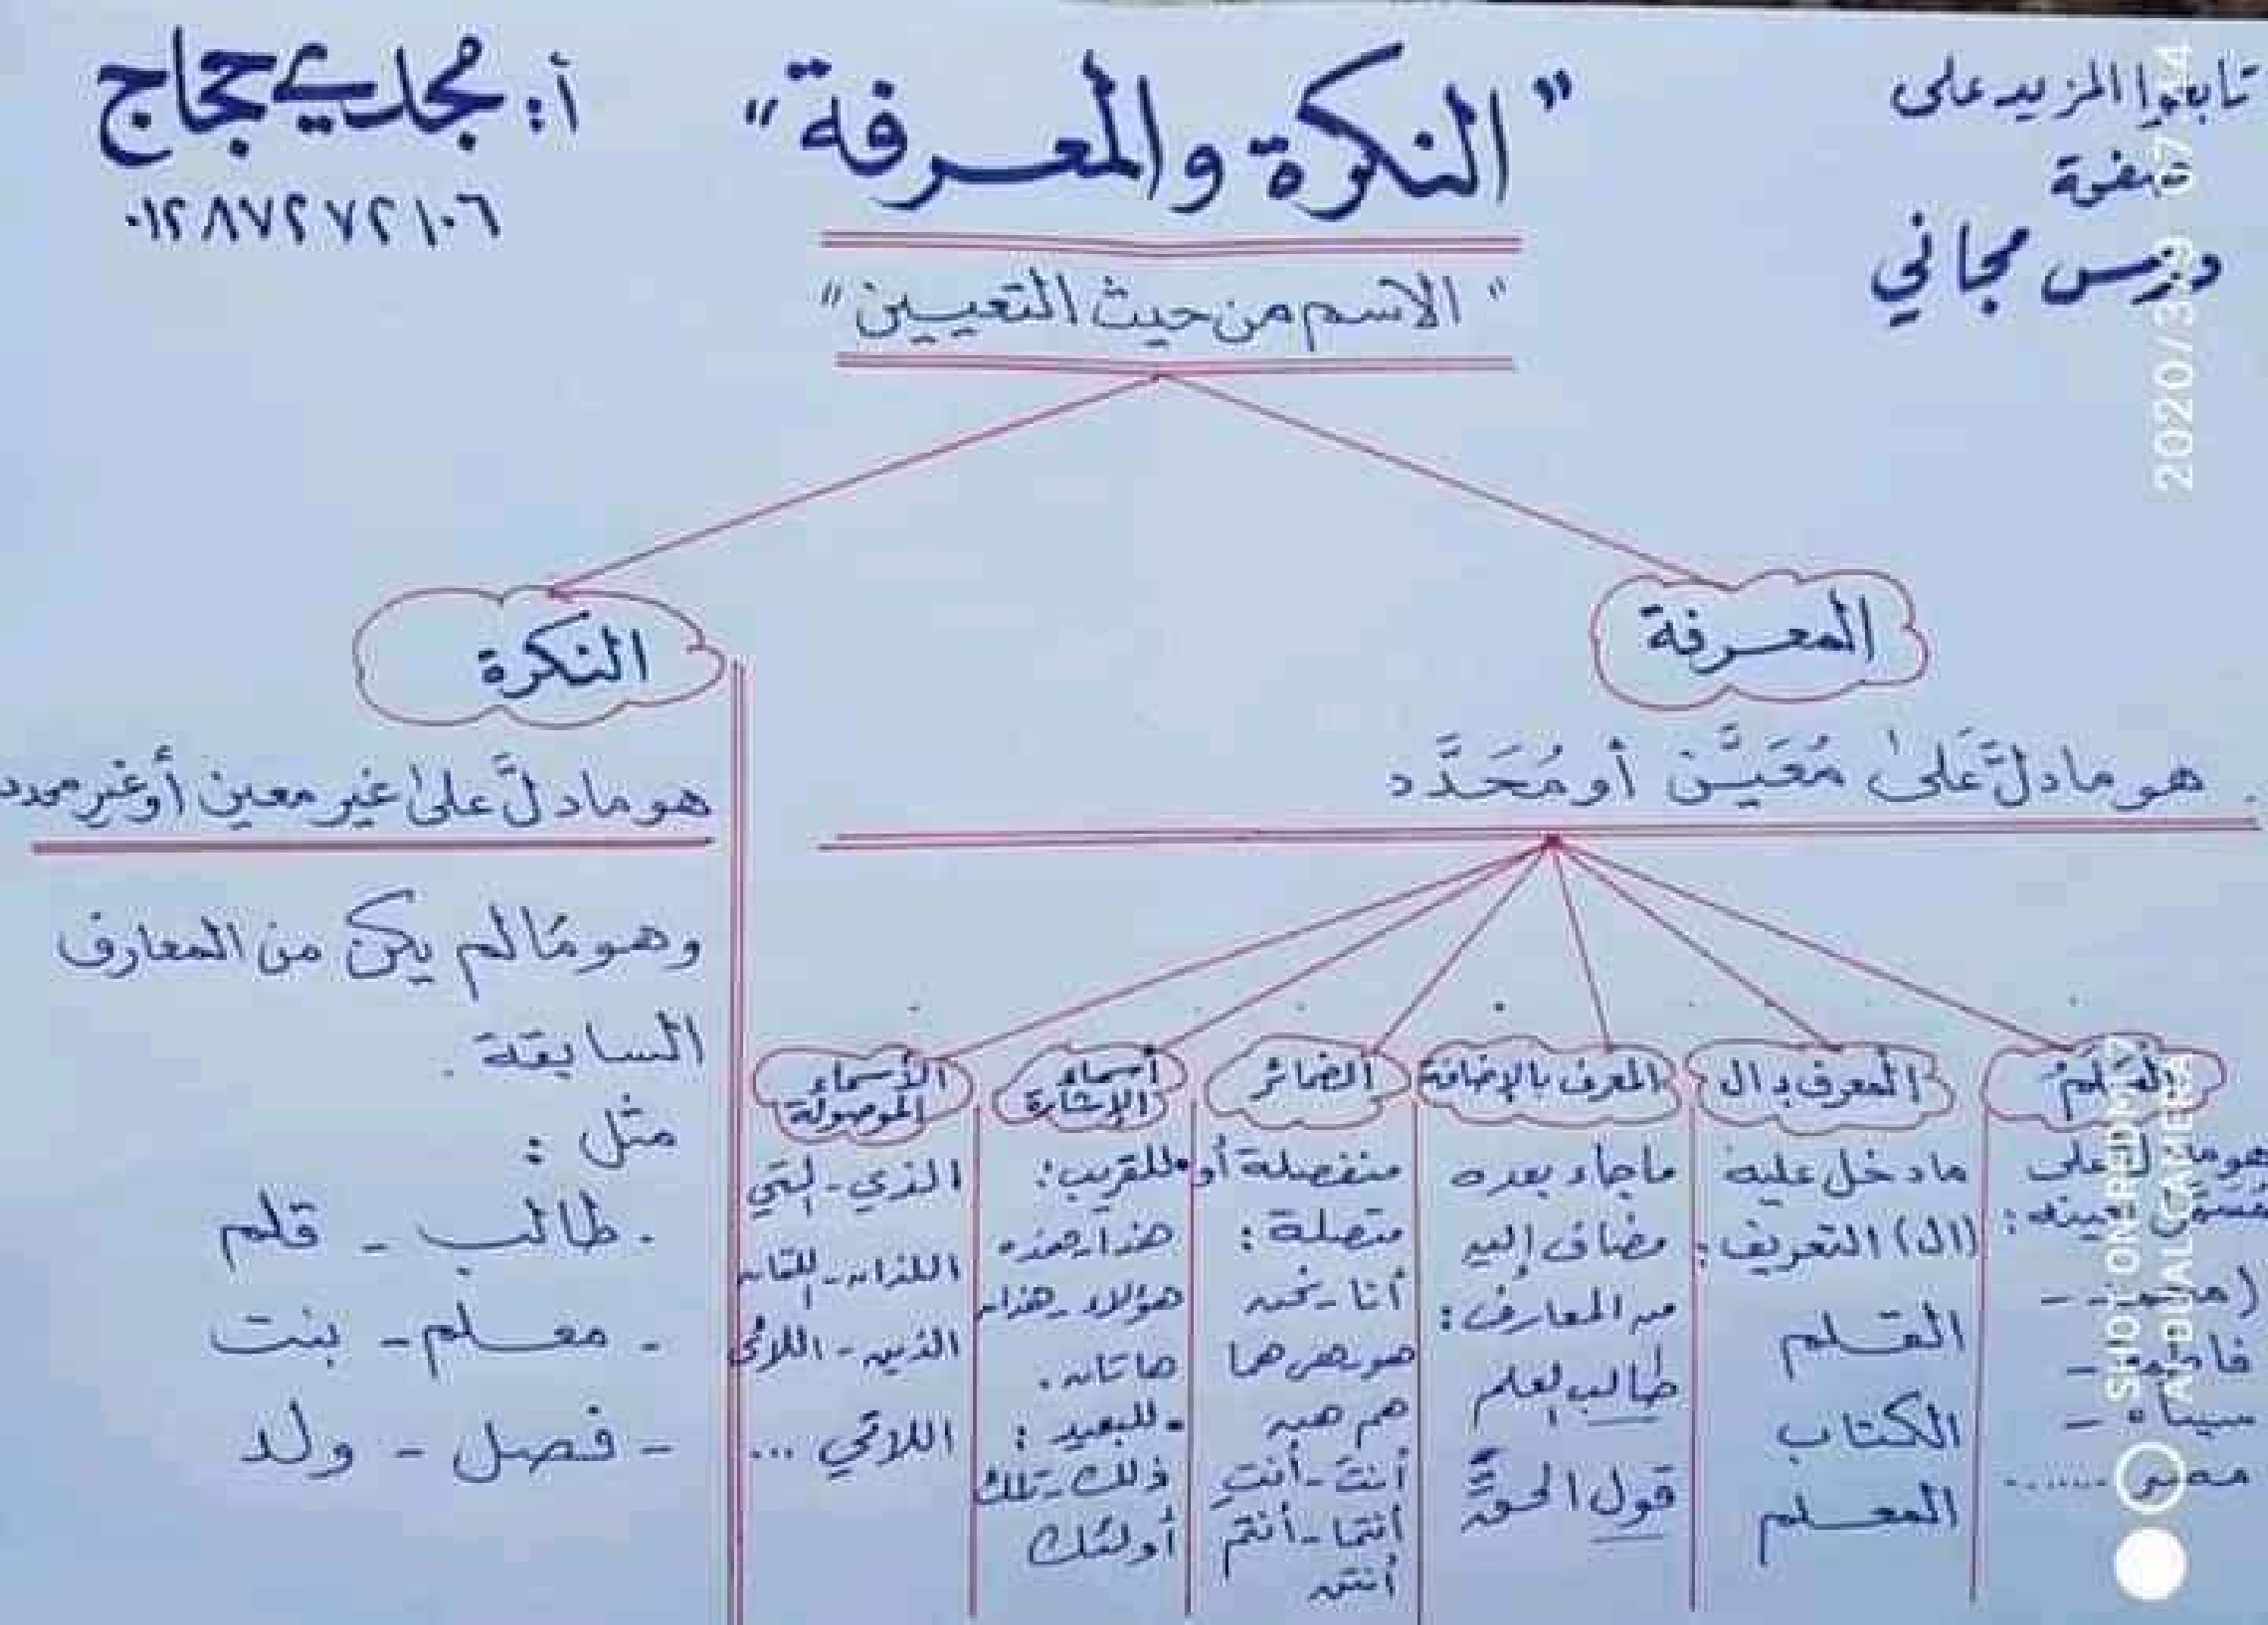 تابعوا المزيد على
صفحة
درس مجاني
"النكرة والمعرفة"
أ: مجدي حجاج
٠١٢٨٧٢٧٢١٠٦
"الاسم من حيث التعيين"
المعرفة
هو ما دلَّ عَلىٰ مُعَيَّن أو مُحَدَّد
العَلَمُ
هو ما دل على
مسمى بعينه:
فاطمة -
سيناء -
مصر ......
المعرف بـ ال
ما دخل عليه
(ال) التعريف:
القلم
الكتاب
المعلم
المعرف بالإضافة
ما جاء بعده
مضاف إليه
من المعارف:
طالب العلم
قول الحقِّ
الضمائر
منفصلة أو
متصلة:
أنا - نحن
هو - هي هما
هم هن
أنتَ - أنتِ
أنتما - أنتم
أنتن
أسماء
الإشارة
• للقريب:
هذا - هذه
هؤلاء - هذان
هاتان.
• للبعيد:
ذلك - تلك
أولئك
الأسماء
الموصولة
الذي - التي
اللذان - اللتان
الذين - اللائي
اللاتي ...
النكرة
هو ما دلَّ علىٰ غير معين أو غير محدد
وهو ما لم يكن من المعارف
السابقة.
مثل:
. طالب - قلم
- معلم - بنت
- فصل - ولد
SHOT ON REDMI 7
AI DUAL CAMERA